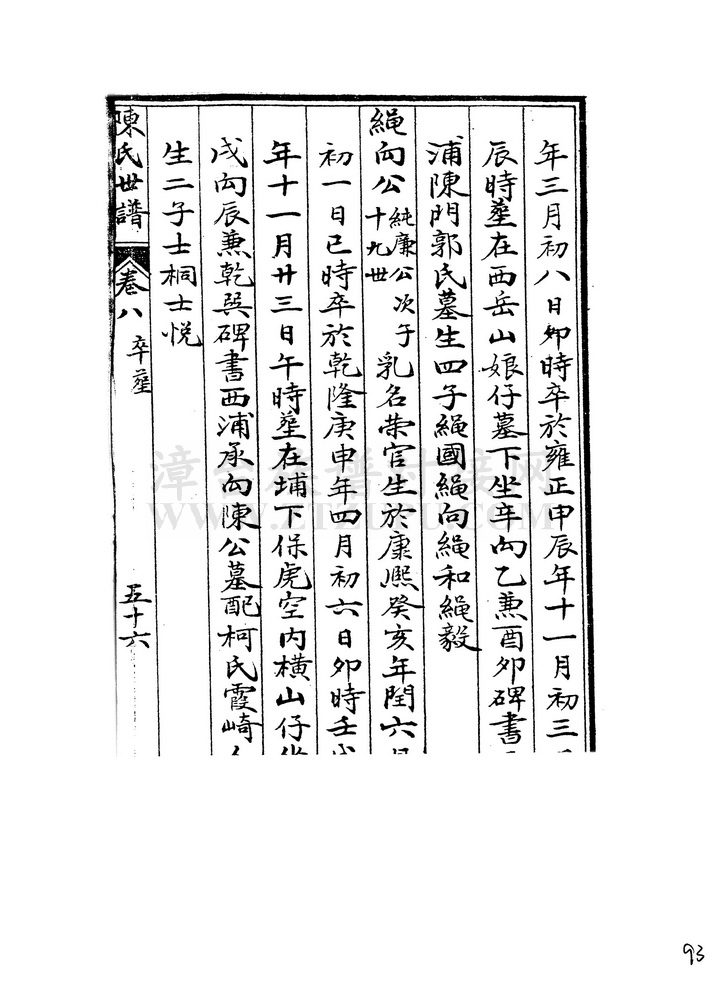 年三月初八日卯時卒於雍正甲辰年十一月初三
辰時塟在西岳山娘仔墓下坐辛向乙兼酉卯碑書
浦陳門郭氏墓生四子繩國繩向繩和繩毅
繩向公純廉公次子十九世乳名荣官生於康熙癸亥年閏六月
初一日巳時卒於乾隆庚申年四月初六日卯時壬戌
年十一月廿三日午時塟在埔下保虎空内横山仔坐
戌向辰兼乾巽碑書西浦承向陳公墓配柯氏霞崎人
生二子士桐士悅
陳氏世譜 卷八 卒塟 五十六
漳台族譜对接网
WWW.ZTZUPU.COM
93